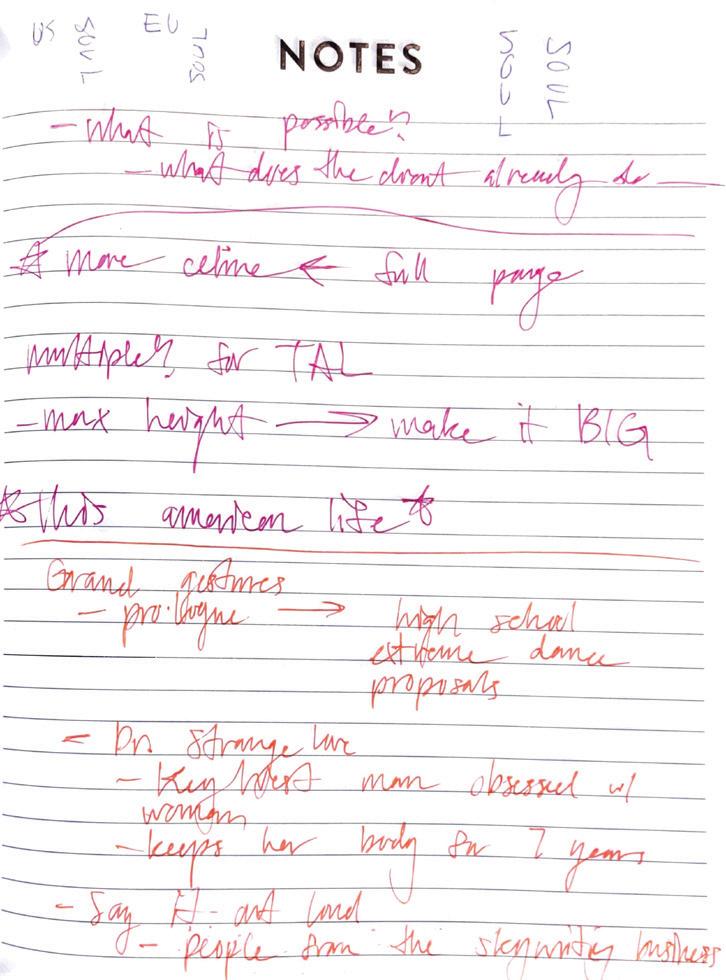 US SOUL EU SOUL SOUL SOUL
NOTES
- what is possible?
- what does the already do
☆ more celine ← full page
multiple? for TAL
- max height → make it BIG
☆ this american life ☆
Grand gestures
- prologue → high school
extreme dance
proposals
- Dr. Strangelove
- Key West man obsessed w/
woman
- keeps her body for 7 years
- Say it out loud
- people from the skywriting business